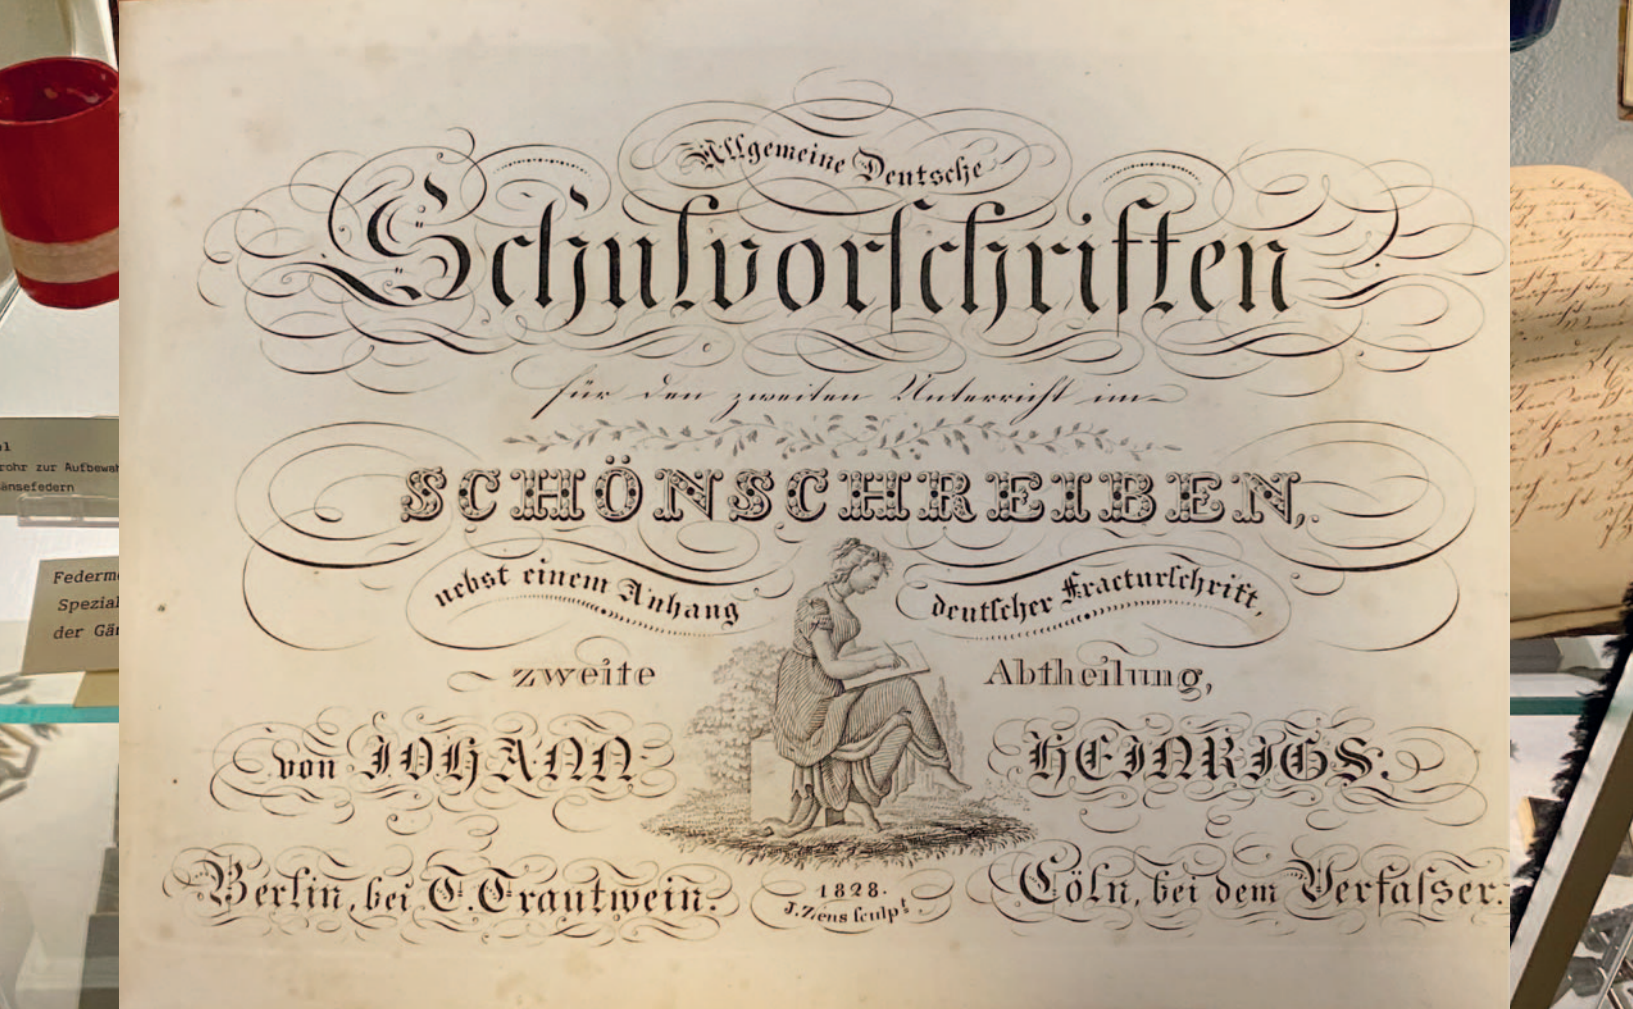 Allgemeine Deutsche
Schulvorſchriften
für den zweiten Unterricht im
SCHÖNSCHREIBEN,
nebst einem Anhang deutſcher Fracturſchrift,
zweite Abtheilung,
von JOHANN HEINRIGS.
Berlin, bei T. Trautwein. 1828. Cöln, bei dem Verfaſser.
J. Ziens ſculpt
rohr zur Aufbewah
änsefedern
Federme
Spezial
der Gän